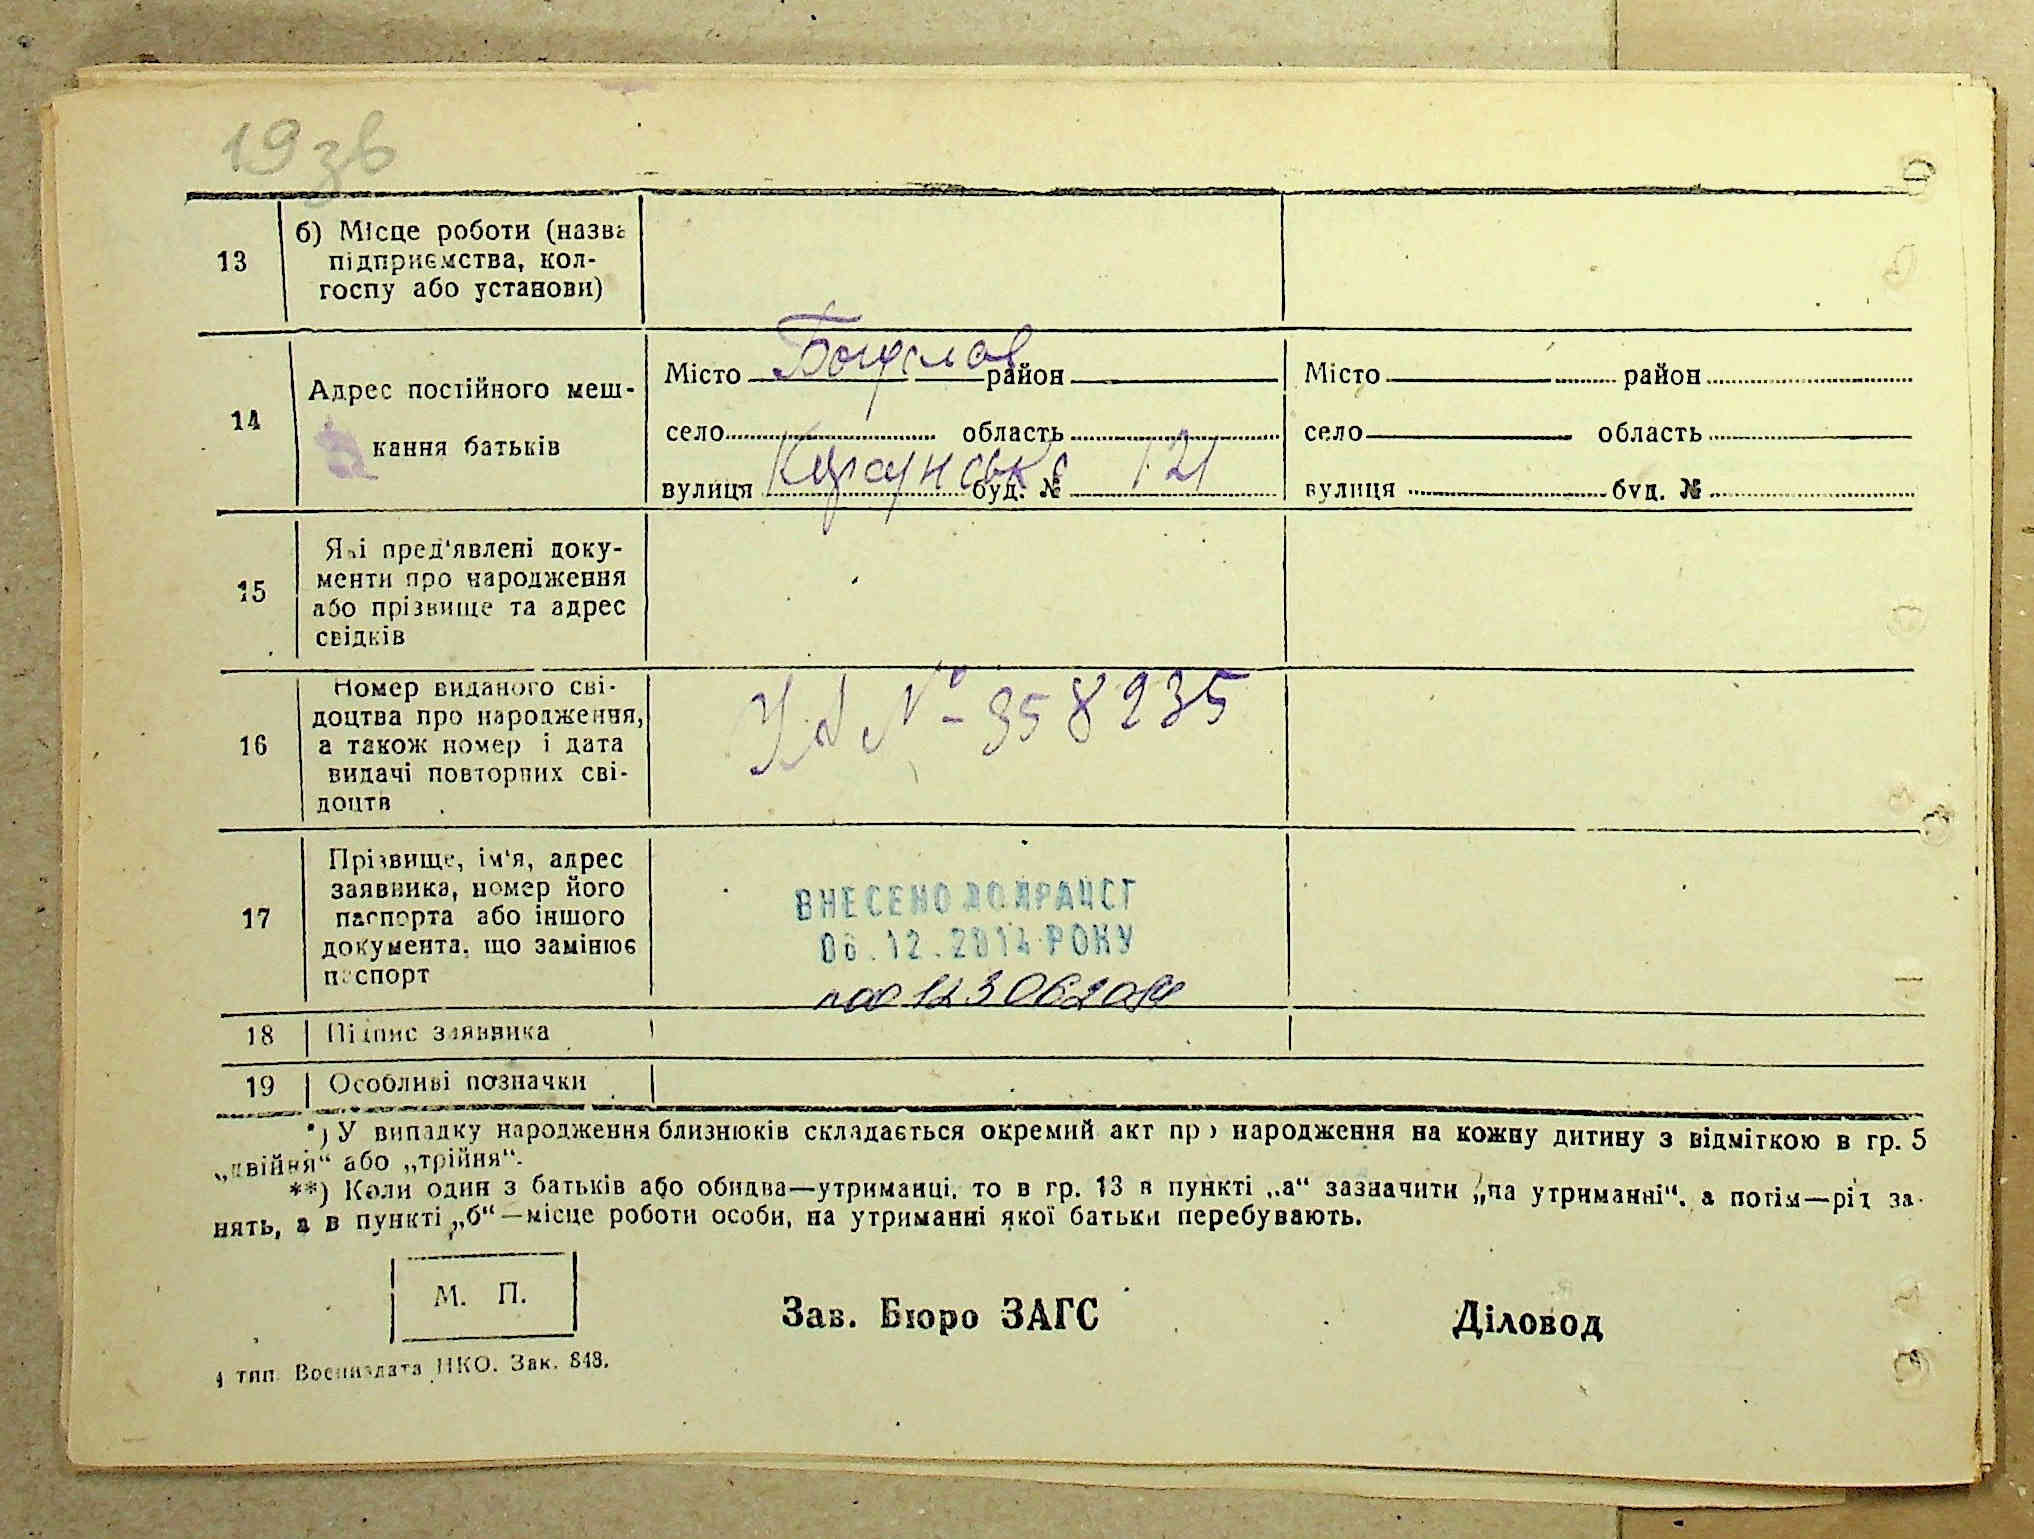 19зв
13
б) Місце роботи (назва
підприємства, кол-
госпу або установи)
14
Адрес постійного меш-
кання батьків
Місто Богуслав район
село область
вулиця Корсунська буд. № 121
Місто район
село область
вулиця буд. №
15
Які пред'явлені доку-
менти про народження
або прізвище та адрес
свідків
16
Номер виданого сві-
доцтва про народження,
а також номер і дата
видачі повторних сві-
доцтв
№ 358235
17
Прізвище, ім'я, адрес
заявника, номер його
паспорта або іншого
документа, що замінює
паспорт
ВНЕСЕНО ДО ДРАЦСГ
06.12.2014 РОКУ
18
Підпис заявника
19
Особливі позначки
*) У випадку народження близнюків складається окремий акт про народження на кожну дитину з відміткою в гр. 5
„двійня“ або „трійня“.
**) Коли один з батьків або обидва—утриманці, то в гр. 13 в пункті „а“ зазначити „на утриманні“, а потім—рід за-
нять, а в пункті „б“—місце роботи особи, на утриманні якої батьки перебувають.
М. П.
Зав. Бюро ЗАГС
Діловод
4 тип. Воениздата НКО. Зак. 848.